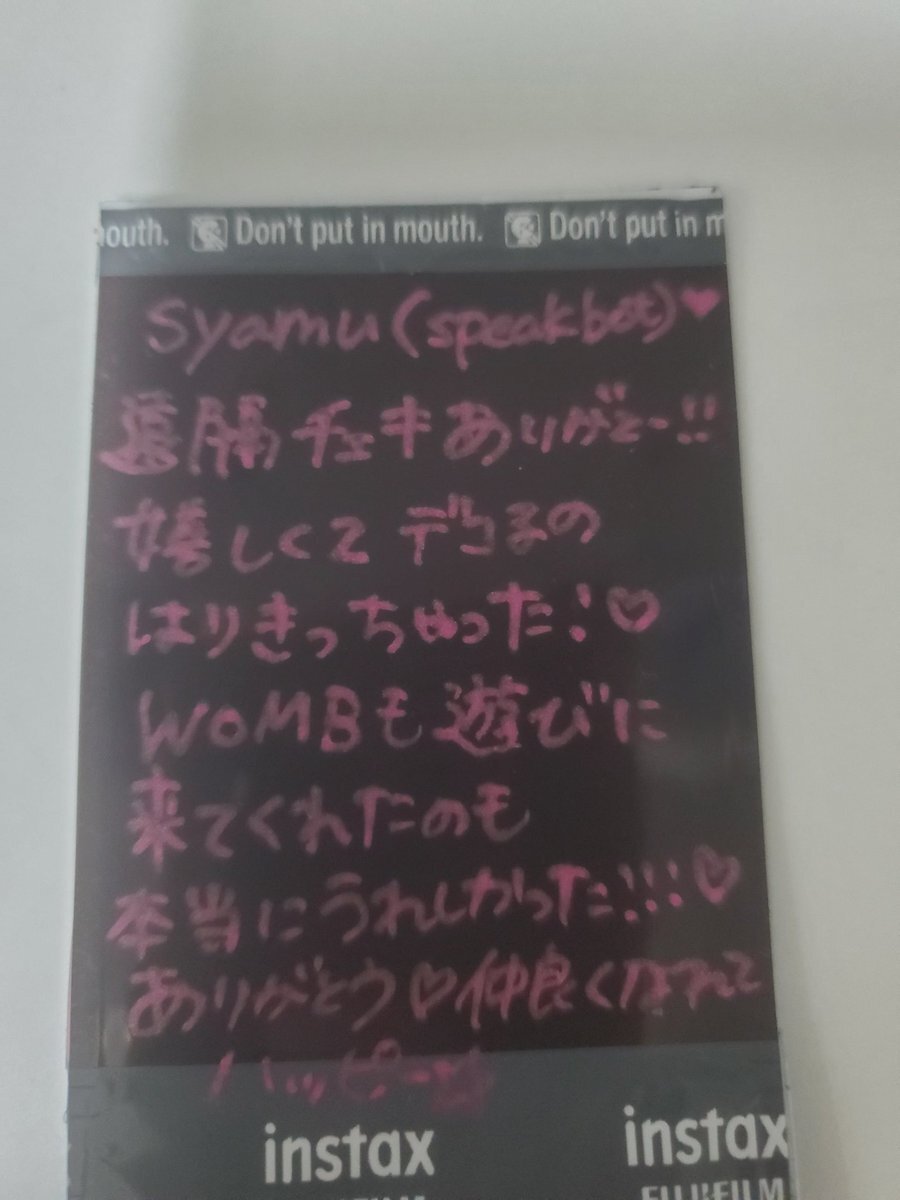 outh. Don't put in mouth. Don't put in m
Syamu(speakbot)♥
遠隔チェキありがとー!!
嬉しくてデコるの
はりきっちゃった!♡
WOMBも遊びに
来てくれたのも
本当にうれしかった!!!♡
ありがとう♡仲良くなれて
ハッピー
instax instax
FUJIFILM